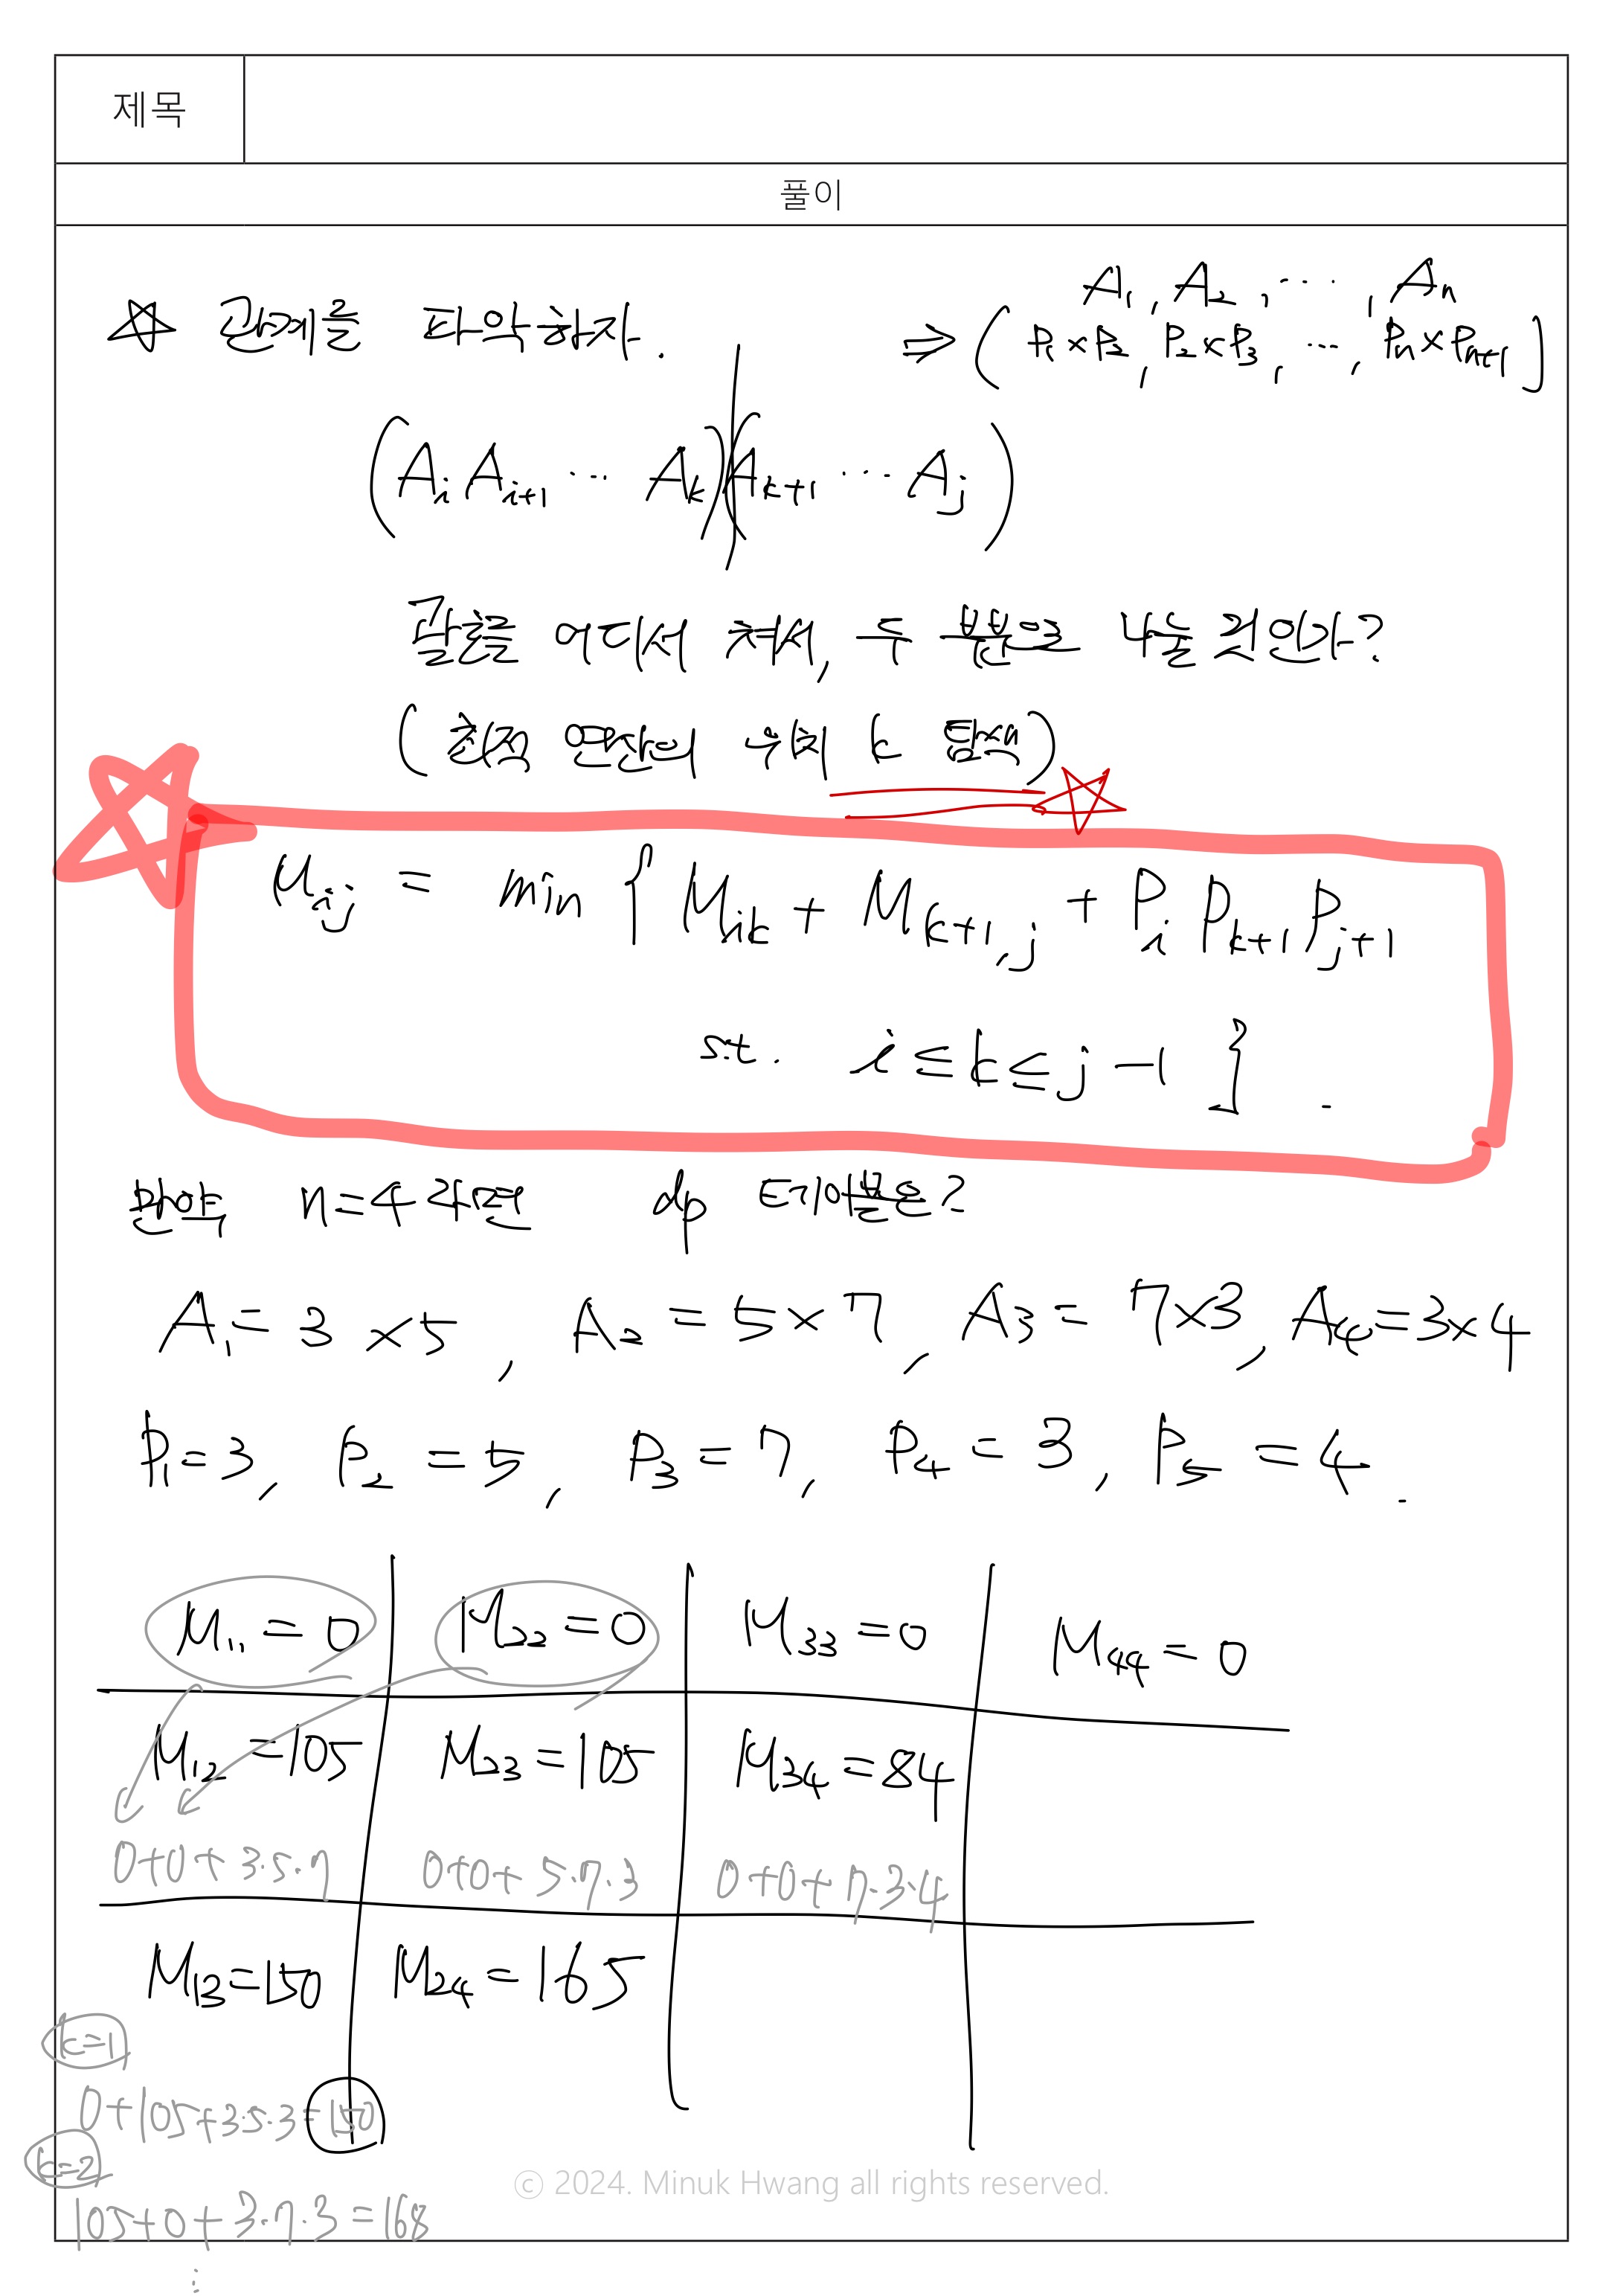 제목
풀이
A₁, A₂, ..., Aₙ
☆ 관계를 파악하자. ⇒ ( P₁×P₂, P₂×P₃, ..., Pₙ×Pₙ₊₁ ]
(AᵢAᵢ₊₁ ... Aₖ)(Aₖ₊₁ ... Aⱼ)
괄호를 어디서 쳐서, 두 부분으로 나눌 것인가?
(최종 연산의 위치 k 탐색)
M_ij = min { M_ik + M_k+1,j + P_i P_k+1 P_j+1
s.t. i ≤ k ≤ j-1 } .
만약 n=4 라면 dp 테이블은?
A₁= 3×5, A₂ = 5×7, A₃= 7×3, A₄=3×4
P₁=3, P₂=5, P₃=7, P₄=3, P₅=4.
M₁₁=0 M₂₂=0 M₃₃=0 M₄₄=0
M₁₂=105 M₂₃=105 M₃₄=84
0+0+3·5·7 0+0+5·7·3 0+0+7·3·4
M₁₃=150 M₂₄=165
k=1
0+105+3·5·3=150
k=2
© 2024. Minuk Hwang all rights reserved.
105+0+3·7·3=168
⋮